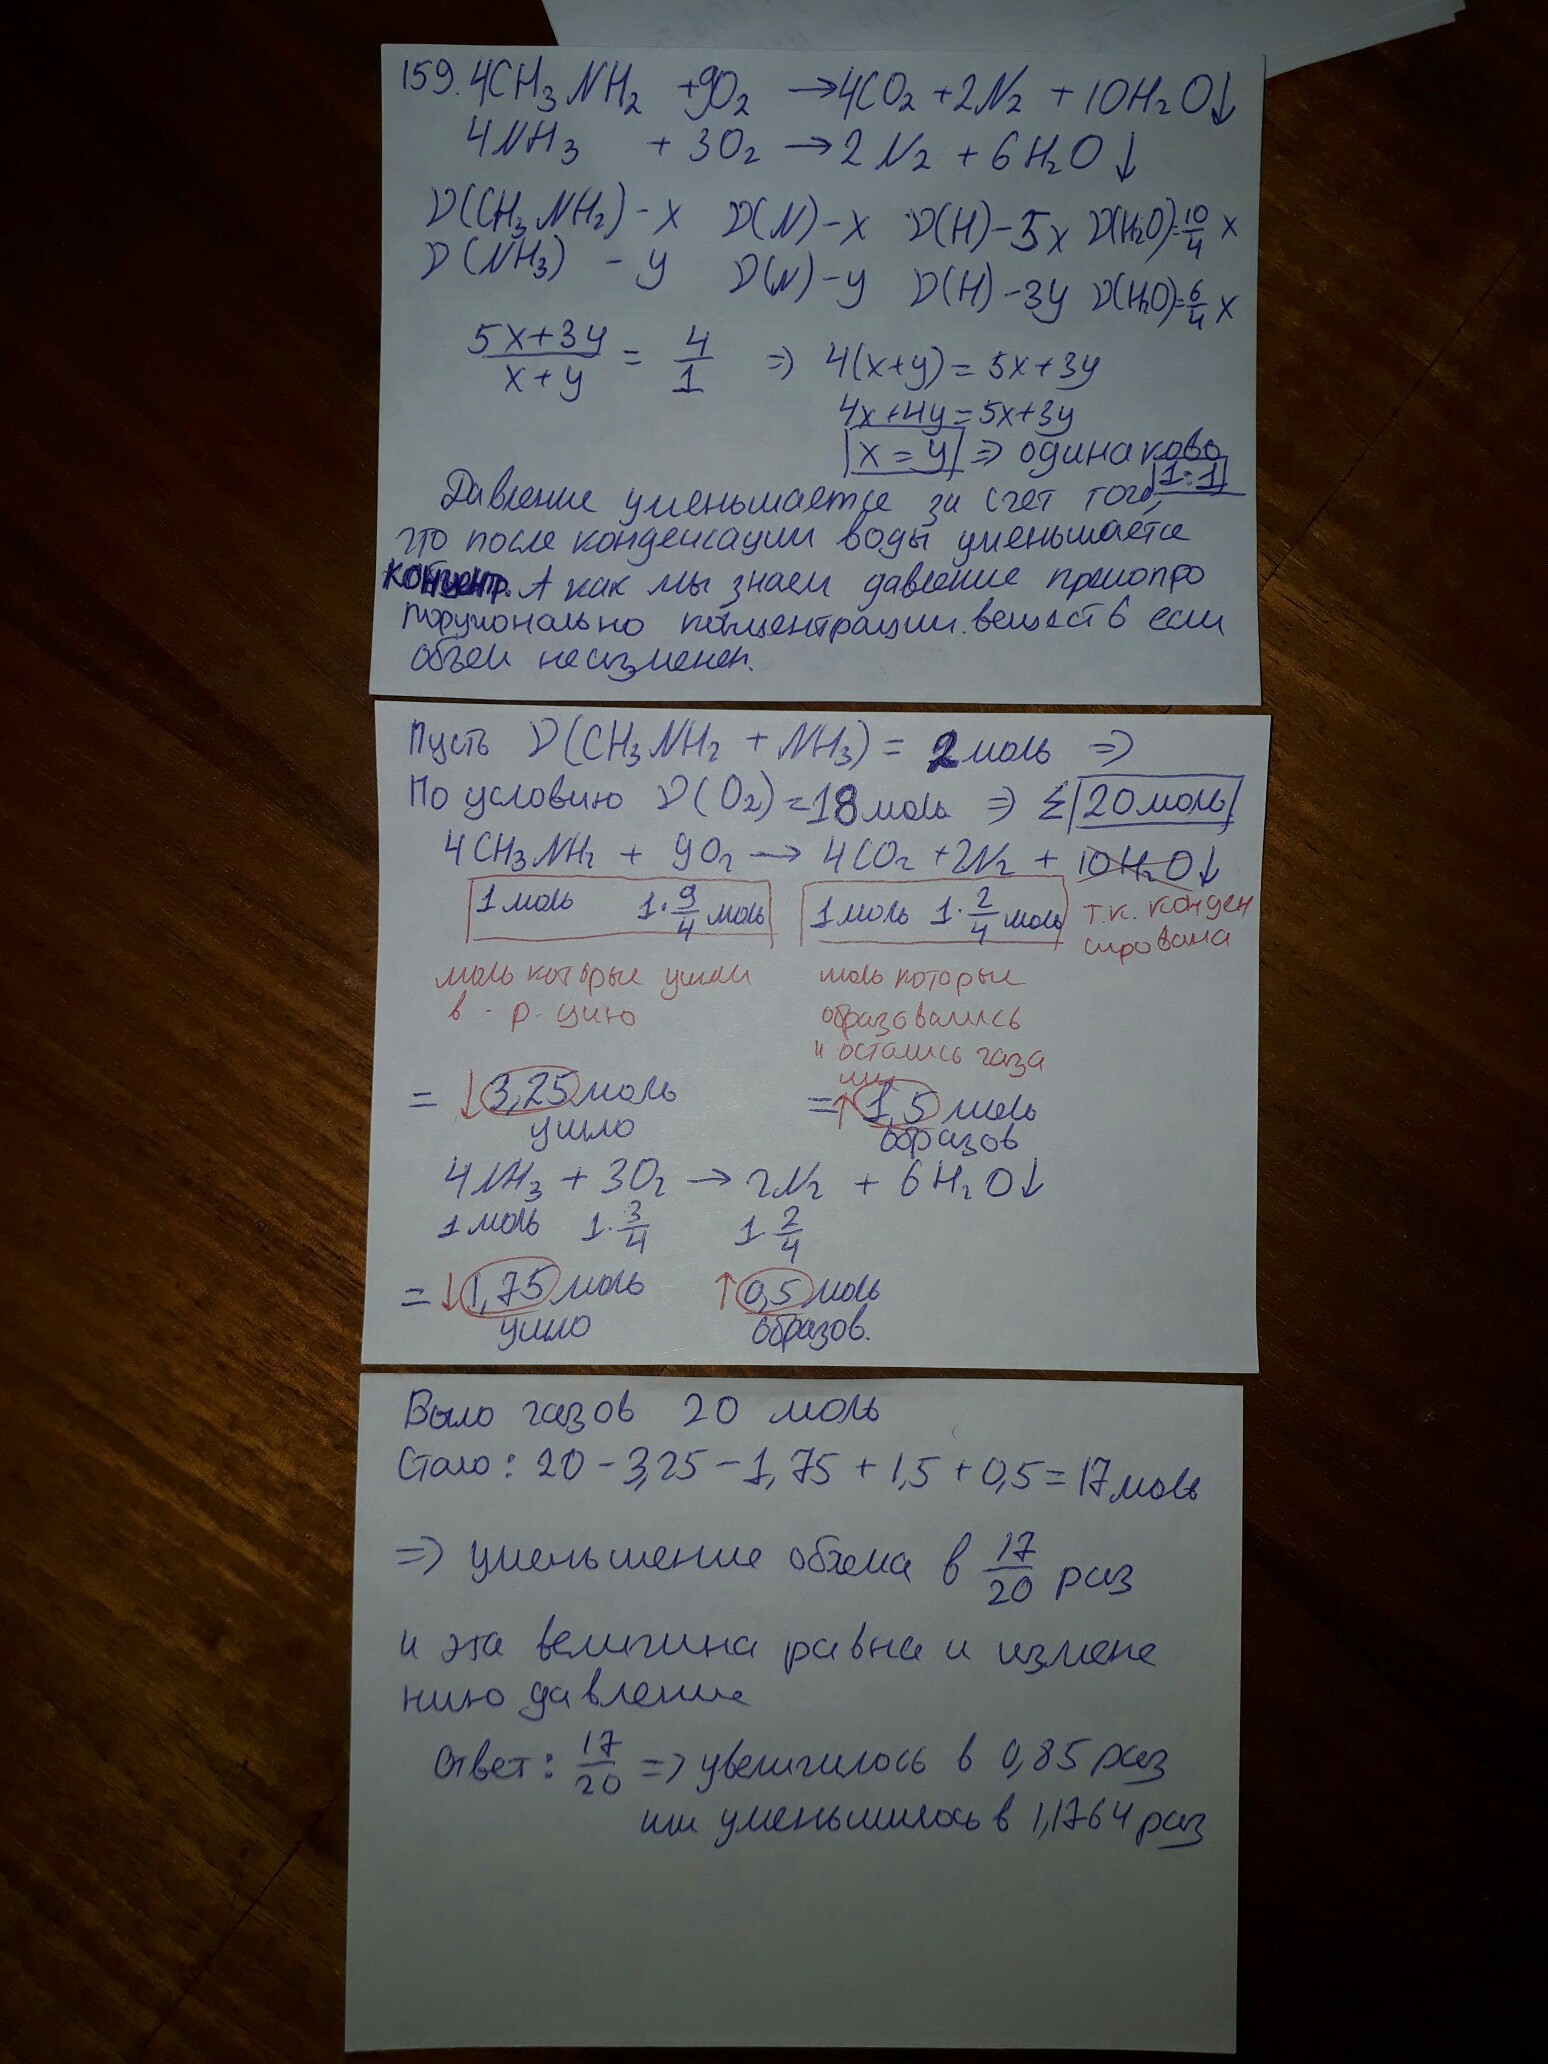 159. 4CH₃NH₂ + 9O₂ → 4CO₂ + 2N₂ + 10H₂O↓
4NH₃ + 3O₂ → 2N₂ + 6H₂O↓
ν(CH₃NH₂) - x ν(N) - x ν(H) - 5x ν(H₂O) = 10/4 x
ν(NH₃) - y ν(N) - y ν(H) - 3y ν(H₂O) = 6/4 x
(5x+3y)/(x+y) = 4/1 ⇒ 4(x+y) = 5x+3y
4x+4y = 5x+3y
x = y ⇒ одинаково
1:1
Давление уменьшается за счет того,
что после конденсации воды уменьшается
концентр. А как мы знаем давление прямопро
порционально концентрации веществ если
объем неизменен.
Пусть ν(CH₃NH₂ + NH₃) = 2 моль ⇒
По условию ν(O₂) = 18 моль ⇒ Σ 20 моль
4CH₃NH₂ + 9O₂ → 4CO₂ + 2N₂ + 10H₂O↓
1 моль 1·9/4 моль 1 моль 1·2/4 моль т.к. конден
сирована
моль которые ушли моль которые
в - р - цию образовались
и остались газа
ми
= ↓3,25 моль = ↑1,5 моль
ушло образов
4NH₃ + 3O₂ → 2N₂ + 6H₂O↓
1 моль 1·3/4 1·2/4
= ↓1,75 моль ↑0,5 моль
ушло образов.
Было газов 20 моль
Стало: 20 - 3,25 - 1,75 + 1,5 + 0,5 = 17 моль
⇒ уменьшение объема в 17/20 раз
и эта величина равна и измене
нию давление
Ответ: 17/20 ⇒ увеличилось в 0,85 раз
или уменьшилось в 1,1764 раз